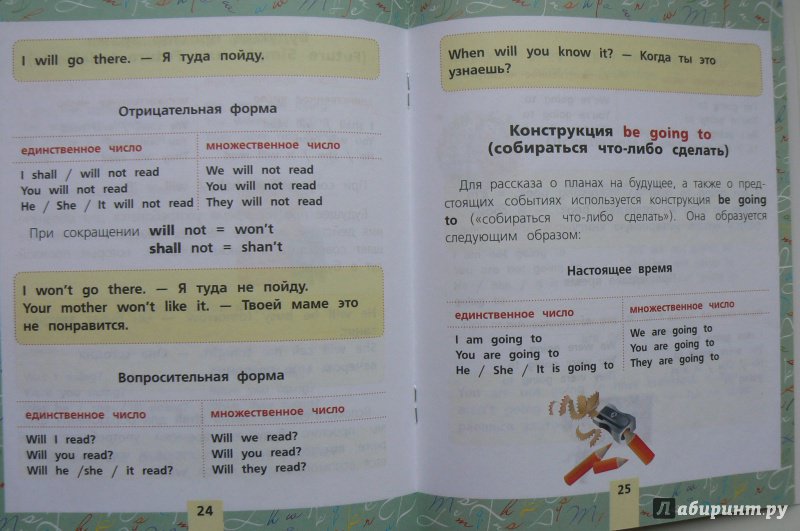 I will go there. — Я туда пойду.
Отрицательная форма
единственное число
I shall / will not read
You will not read
He / She / It will not read
множественное число
We will not read
You will not read
They will not read
При сокращении will not = won't
shall not = shan't
I won't go there. — Я туда не пойду.
Your mother won't like it. — Твоей маме это
не понравится.
Вопросительная форма
единственное число
Will I read?
Will you read?
Will he /she / it read?
множественное число
Will we read?
Will you read?
Will they read?
24
When will you know it? — Когда ты это
узнаешь?
Конструкция be going to
(собираться что-либо сделать)
Для рассказа о планах на будущее, а также о пред-
стоящих событиях используется конструкция be going
to («собираться что-либо сделать»). Она образуется
следующим образом:
Настоящее время
единственное число
I am going to
You are going to
He / She / It is going to
множественное число
We are going to
You are going to
They are going to
25
Лабиринт.ру